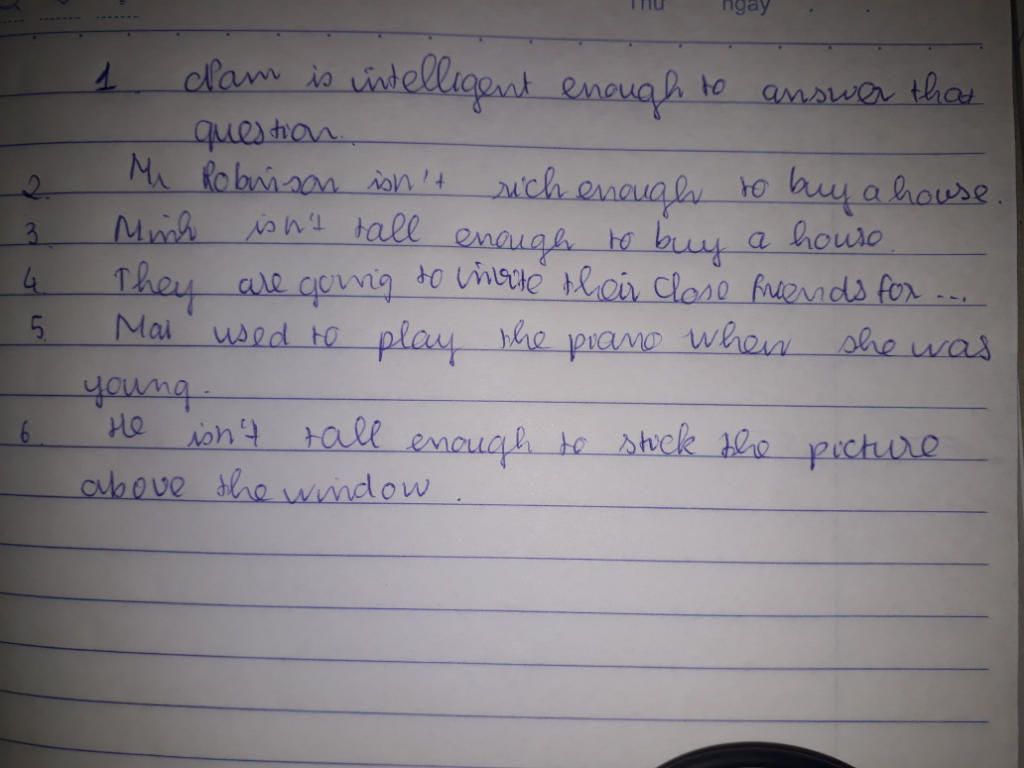 Thứ ngày
1. Nam is intelligent enough to answer that
question.
2. Mr Robinson isn't rich enough to buy a house.
3. Minh isn't tall enough to buy a house.
4. They are going to invite their close friends for ...
5. Mai used to play the piano when she was
young.
6. He isn't tall enough to stick the picture
above the window.